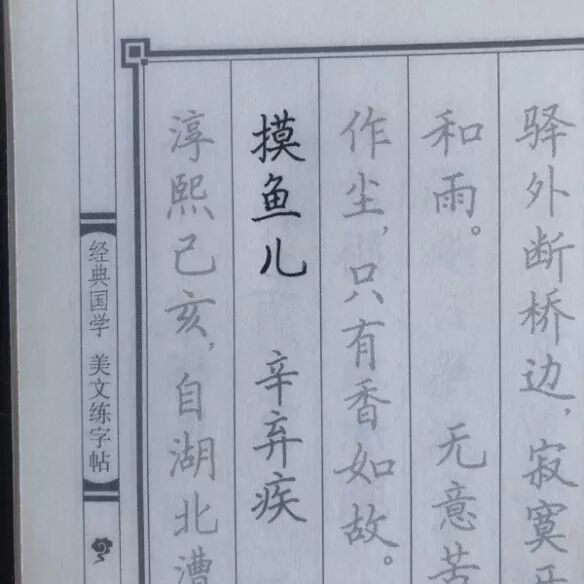 驿外断桥边，寂寞
和雨。 无意苦
作尘，只有香如故。
摸鱼儿 辛弃疾
淳熙己亥，自湖北漕
经典国学 美文练字帖